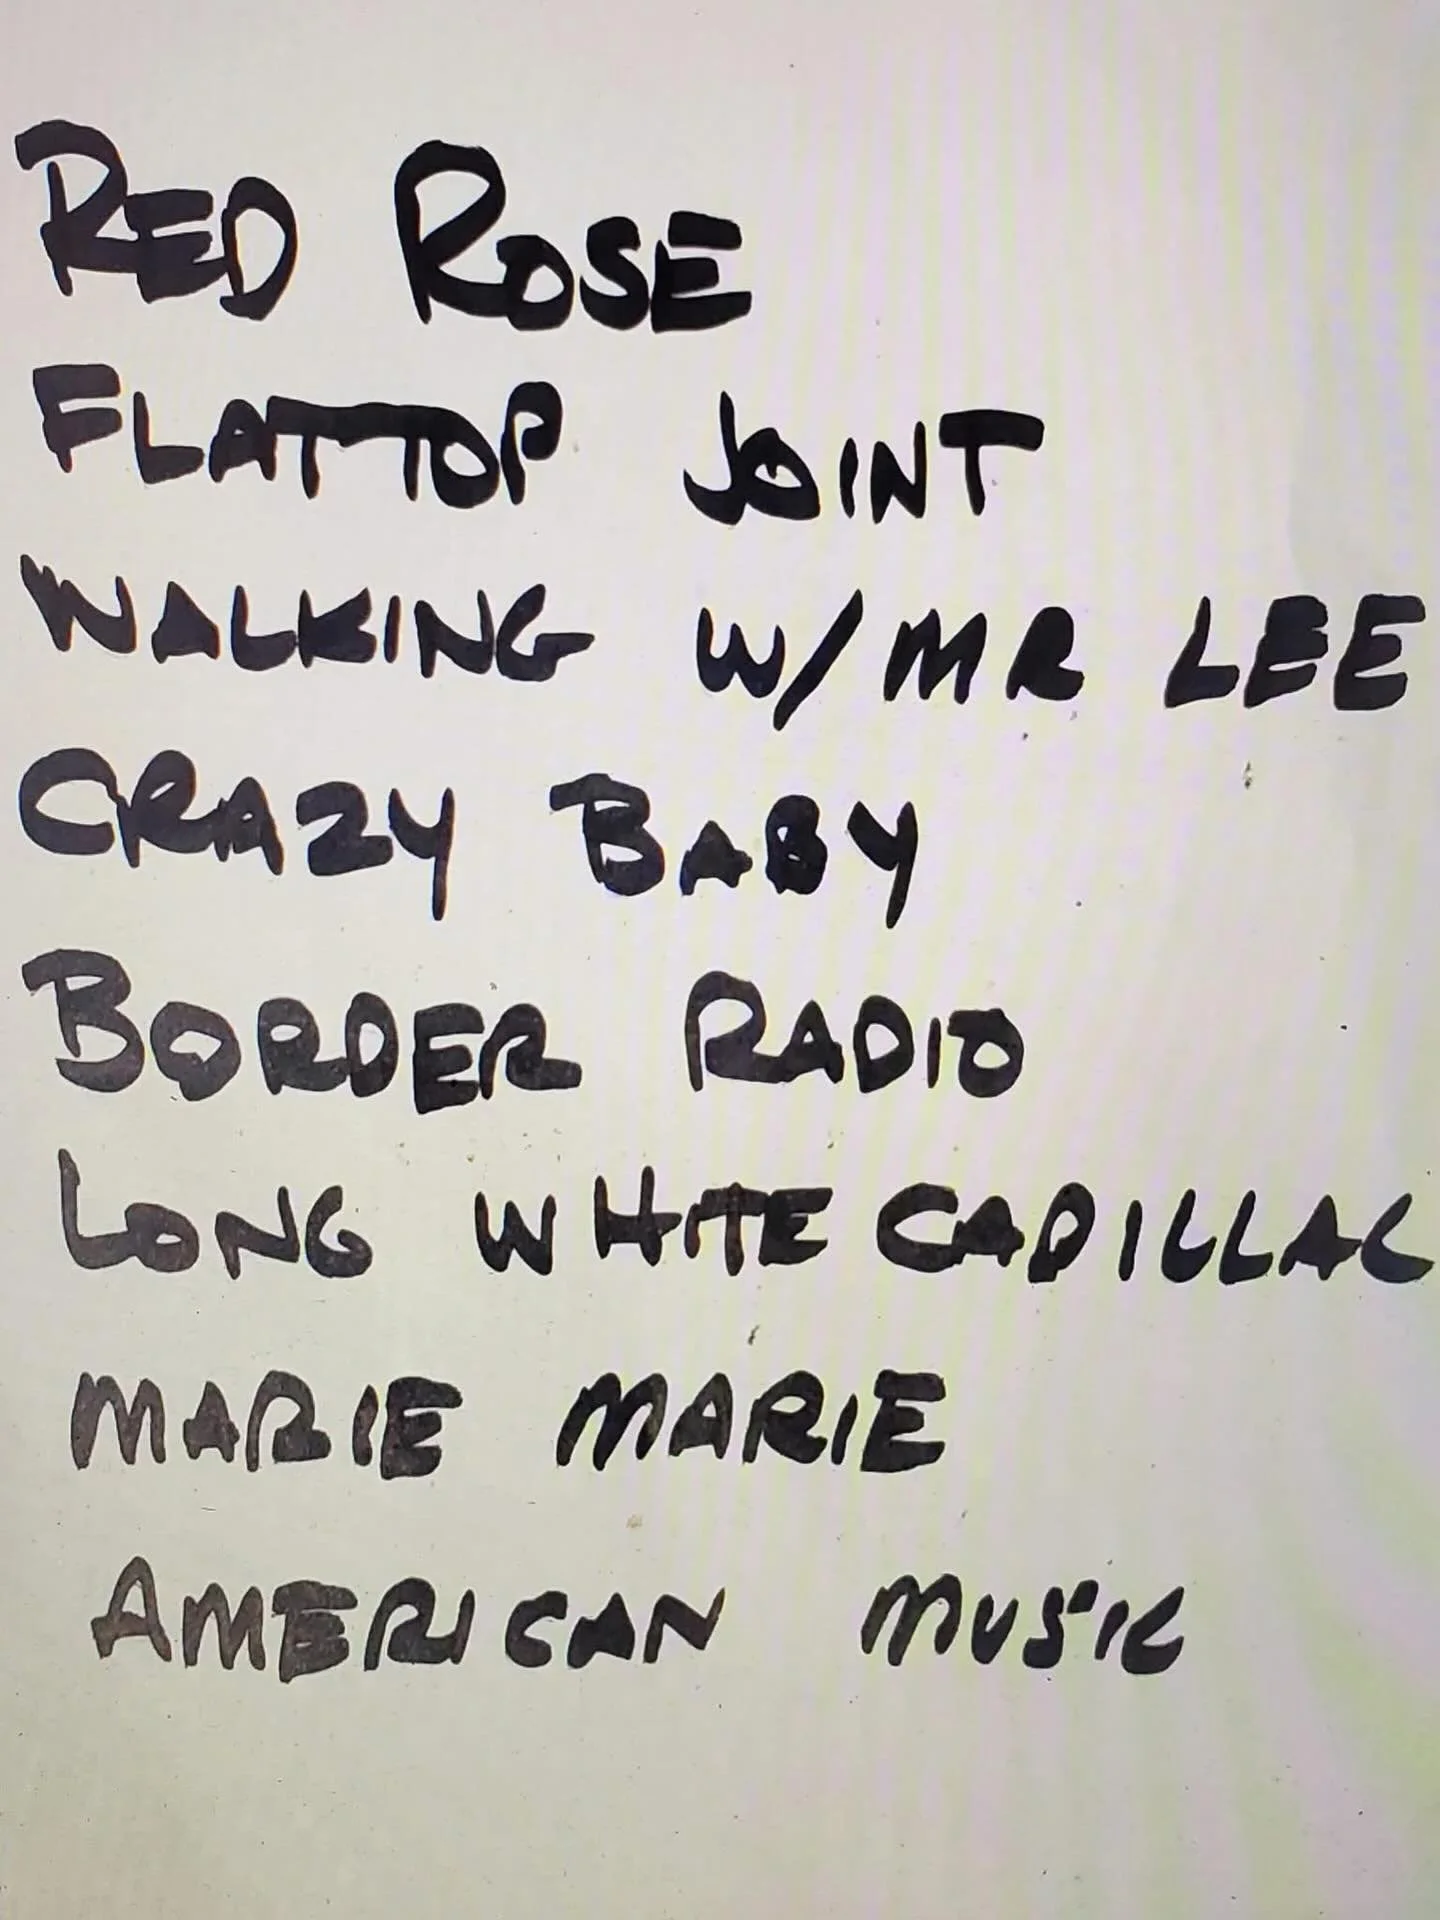 RED ROSE
FLATTOP JOINT
WALKING W/ MR LEE
CRAZY BABY
BORDER RADIO
LONG WHITE CADILLAC
MARIE MARIE
AMERICAN MUSIC